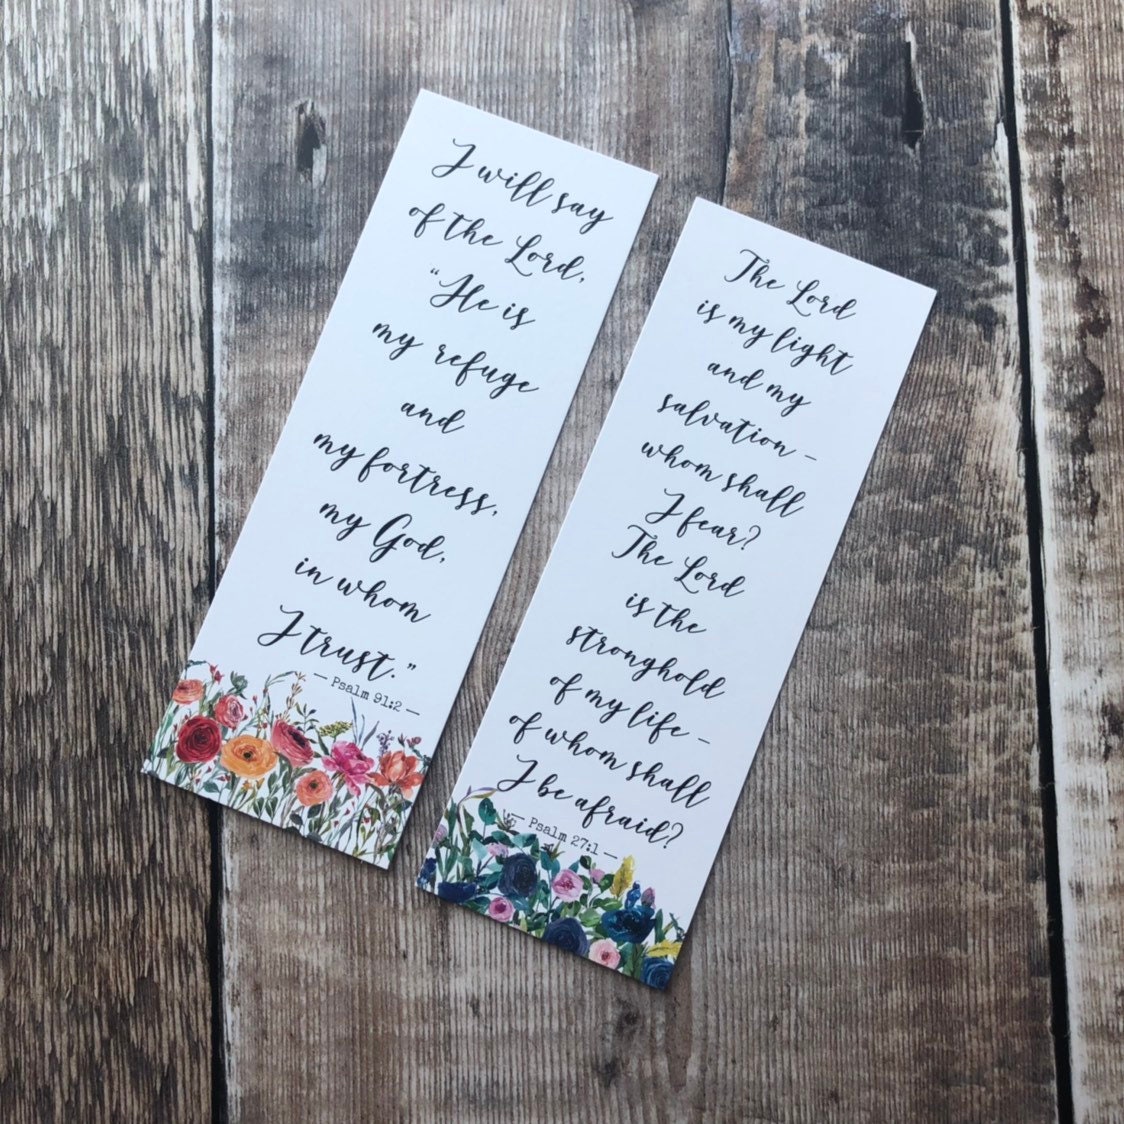 I will say
of the Lord,
"He is
my refuge
and
my fortress,
my God,
in whom
I trust."
— Psalm 91:2 —
The Lord
is my light
and my
salvation –
whom shall
I fear?
The Lord
is the
stronghold
of my life –
of whom shall
I be afraid?
— Psalm 27:1 —